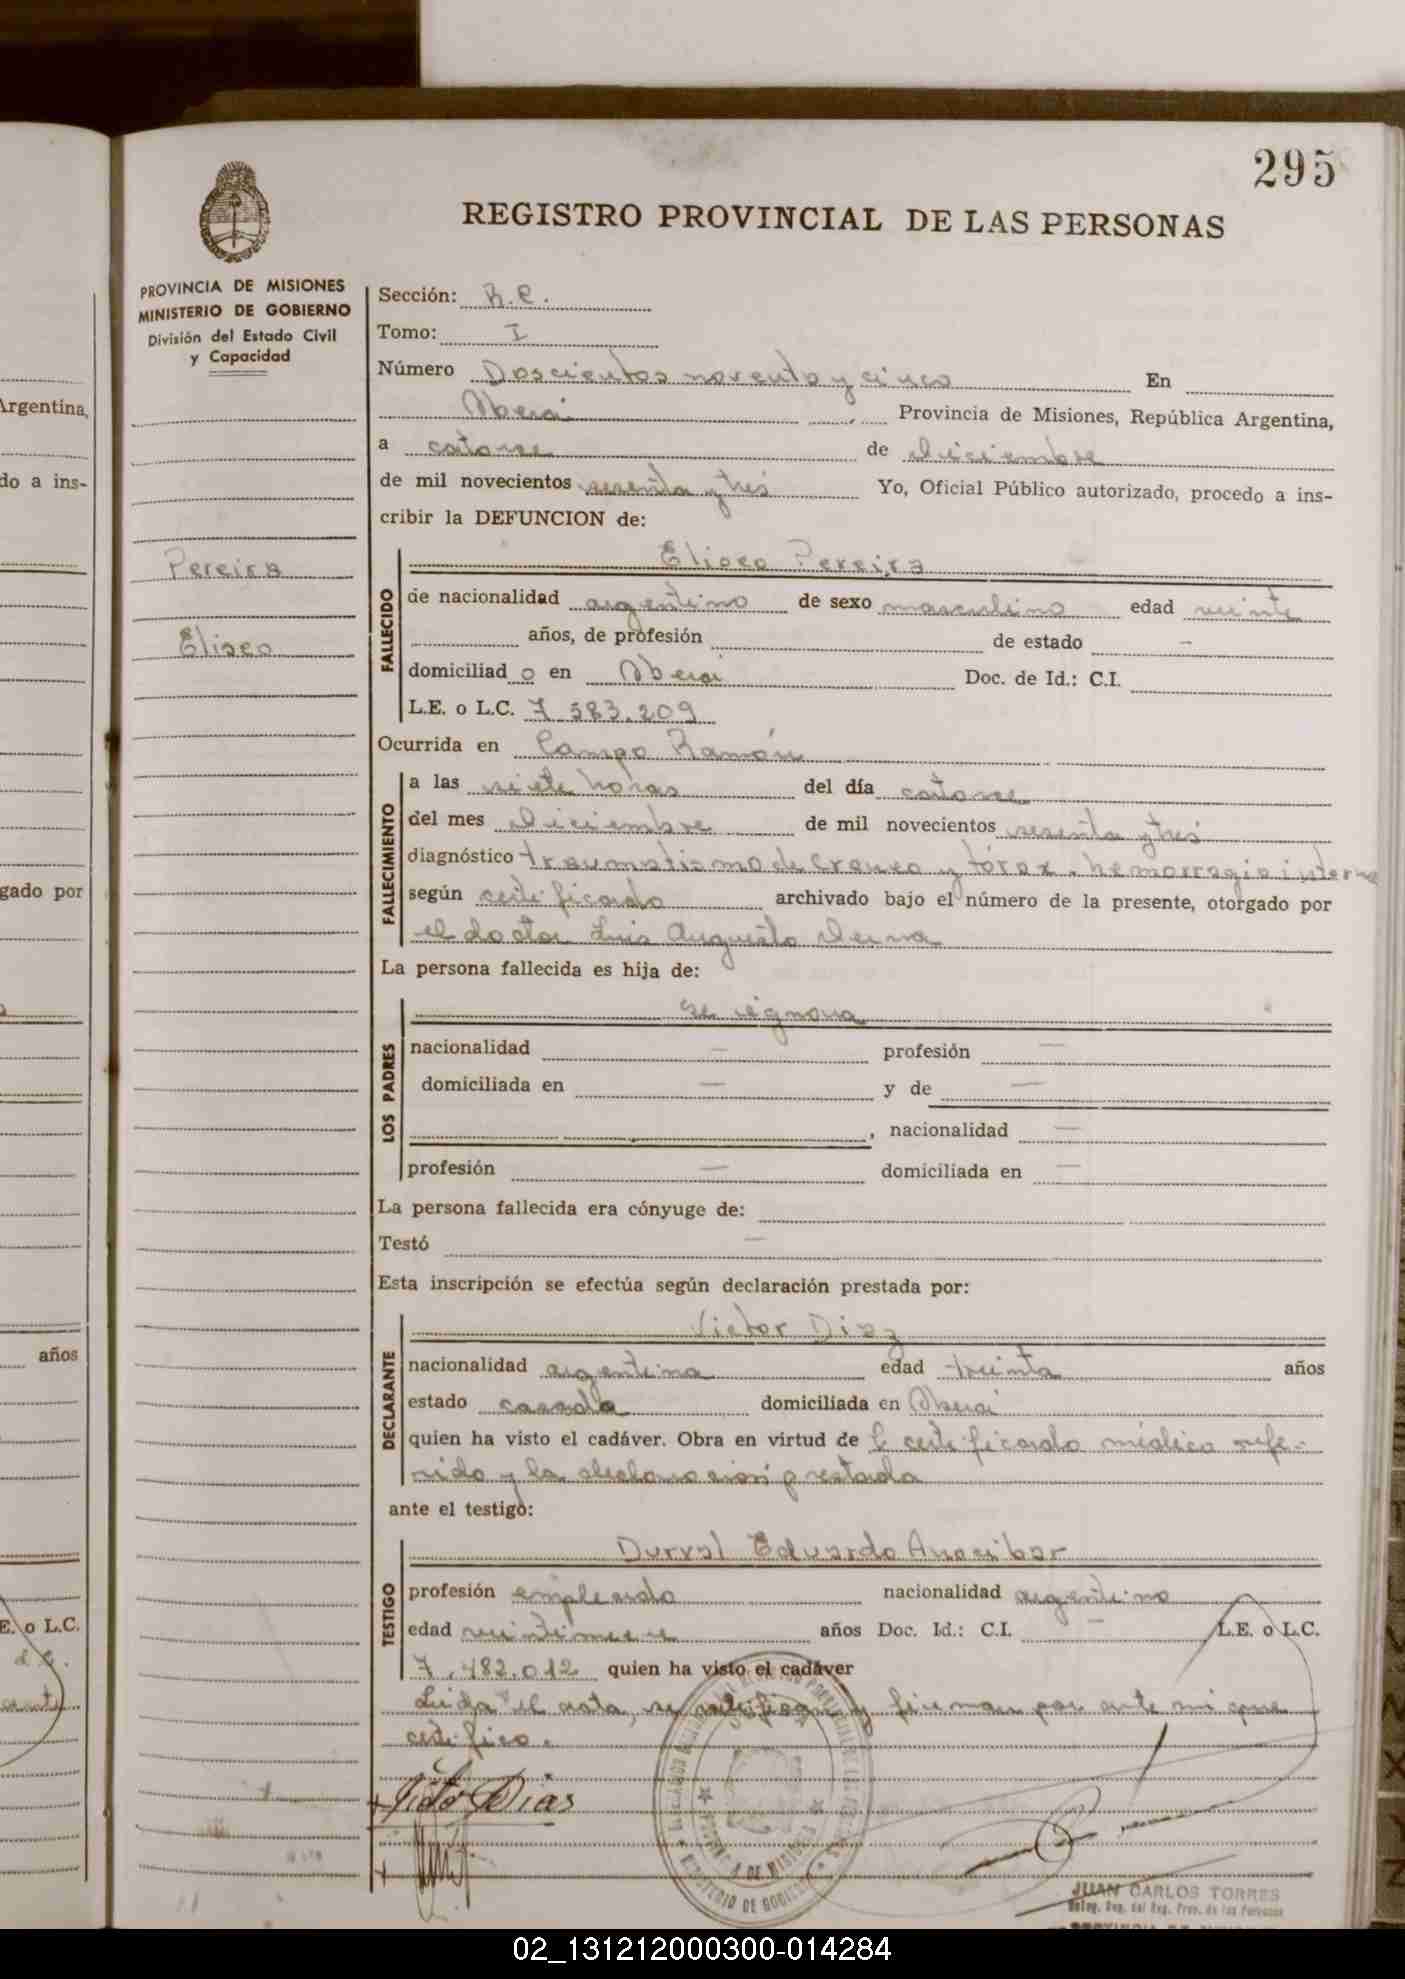 295
REGISTRO PROVINCIAL DE LAS PERSONAS
PROVINCIA DE MISIONES
MINISTERIO DE GOBIERNO
División del Estado Civil
y Capacidad
Argentina,
do a ins-
gado por
años
E. o L.C.
Pereira
Eliseo
Sección: R.C.
Tomo: I
Número Doscientos noventa y cinco En
Oberá Provincia de Misiones, República Argentina,
a catorce de diciembre
de mil novecientos sesenta y tres Yo, Oficial Público autorizado, procedo a ins-
cribir la DEFUNCION de:
FALLECIDO
Eliseo Pereira
de nacionalidad argentino de sexo masculino edad veinte
años, de profesión de estado -
domiciliad o en Oberá Doc. de Id.: C.I.
L.E. o L.C. 7.583.209
Ocurrida en Campo Ramón
FALLECIMIENTO
a las siete horas del día catorce
del mes diciembre de mil novecientos sesenta y tres
diagnóstico traumatismo de craneo y tórax. hemorragia interna
según certificado archivado bajo el número de la presente, otorgado por
el doctor Luis Augusto
La persona fallecida es hija de:
LOS PADRES
se ignora
nacionalidad — profesión —
domiciliada en — y de —
, nacionalidad —
profesión — domiciliada en —
La persona fallecida era cónyuge de:
Testó —
Esta inscripción se efectúa según declaración prestada por:
DECLARANTE
Victor Diaz
nacionalidad argentina edad treinta años
estado casado domiciliada en Oberá
quien ha visto el cadáver. Obra en virtud de certificado médico refe-
rido y la declaración prestada
ante el testigo:
TESTIGO
Durval Eduardo
profesión empleado nacionalidad argentino
edad veintinueve años Doc. Id.: C.I. — L.E. o L.C.
7.482.012 quien ha visto el cadáver
Leida el acta, se ratifican y firman por ante mi que
certifico.
JUAN CARLOS TORRES
02_131212000300-014284